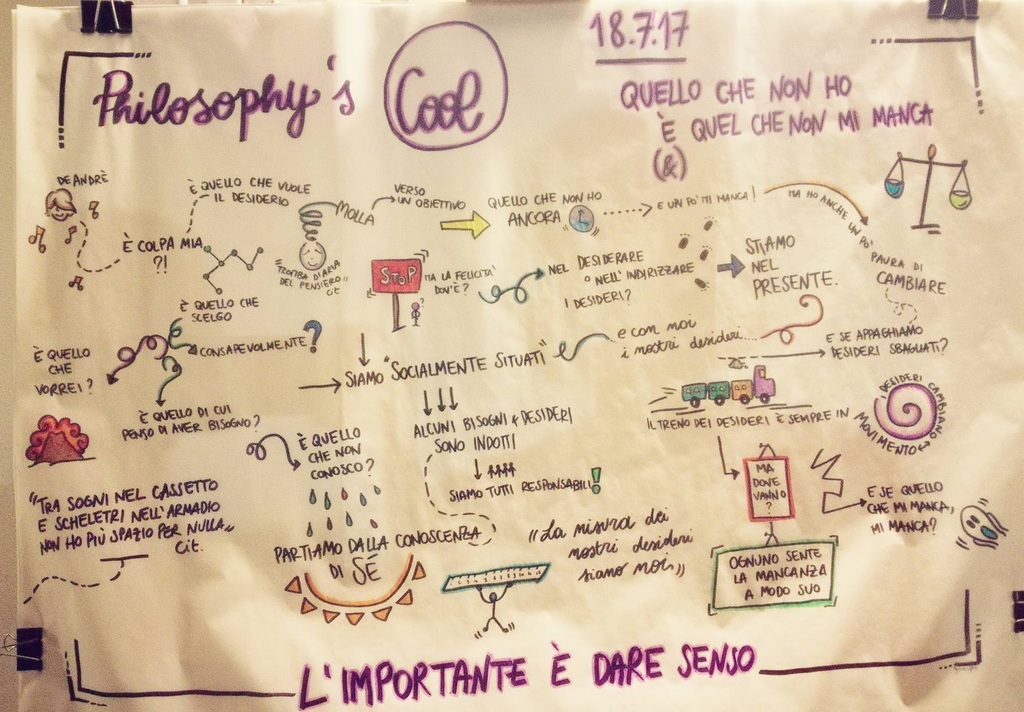 Philosophy's Cool
18.7.17
QUELLO CHE NON HO
È QUEL CHE NON MI MANCA
(&)
DE ANDRÈ
È COLPA MIA
?!
È QUELLO CHE VUOLE
IL DESIDERIO
"TROMBA D'ARIA
DEL PENSIERO"
cit
MOLLA
VERSO
UN OBIETTIVO
QUELLO CHE NON HO
ANCORA
E UN PO' MI MANCA!
MA HO ANCHE UN PO'
PAURA DI
CAMBIARE
STOP
MA LA FELICITA'
DOV'È?
NEL DESIDERARE
O NELL'INDIRIZZARE
I DESIDERI?
STIAMO
NEL
PRESENTE.
È QUELLO CHE
SCELGO
CONSAPEVOLMENTE?
È QUELLO
CHE
VORREI?
È QUELLO DI CUI
PENSO DI AVER BISOGNO?
SIAMO "SOCIALMENTE SITUATI"
e con noi
i nostri desideri...
E SE APPAGHIAMO
DESIDERI SBAGLIATI?
IL TRENO DEI DESIDERI È SEMPRE IN
MOVIMENTO
I DESIDERI CAMBIANO
ALCUNI BISOGNI & DESIDERI
SONO INDOTTI
SIAMO TUTTI RESPONSABILI!
È QUELLO
CHE NON
CONOSCO?
MA
DOVE
VANNO
?
E SE QUELLO
CHE MI MANCA,
MI MANCA?
"TRA SOGNI NEL CASSETTO
E SCHELETRI NELL'ARMADIO
NON HO PIÙ SPAZIO PER NULLA"
Cit.
PARTIAMO DALLA CONOSCENZA
DI SÉ
"La misura dei
nostri desideri
siamo noi"
OGNUNO SENTE
LA MANCANZA
A MODO SUO
L'IMPORTANTE È DARE SENSO